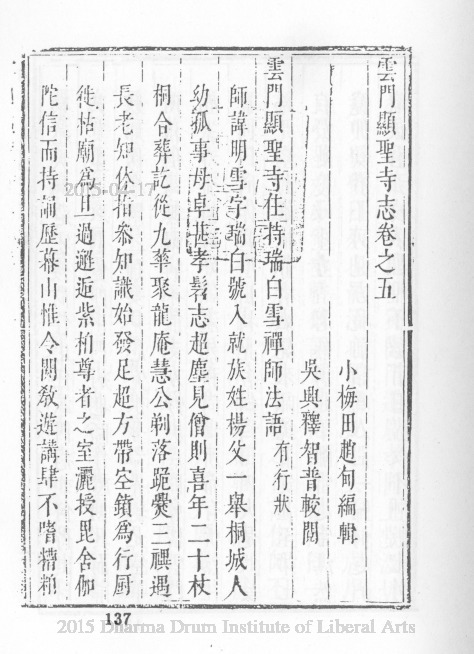 雲門顯聖寺志卷之五
小梅田趙甸編輯
吳興釋智普較閱
雲門顯聖寺住持瑞白雪禪師法語 有行狀
師諱明雪字瑞白號入就族姓楊父一舉桐城人
幼孤事母卓甚孝髫志超塵見僧則喜年二十杖
桐合葬訖從九華聚龍庵慧公剃落跪爨三禩遇
長老知休指叅知識始發足超方帶空鎖為行厨
枯廟為旦過邂逅紫柏尊者之室灑授毘舍伽
陀信而持誦歷暮山惟令閱教遊講肆不嗜糟粕
2015-04-17
137
2015 Dharma Drum Institute of Liberal Arts